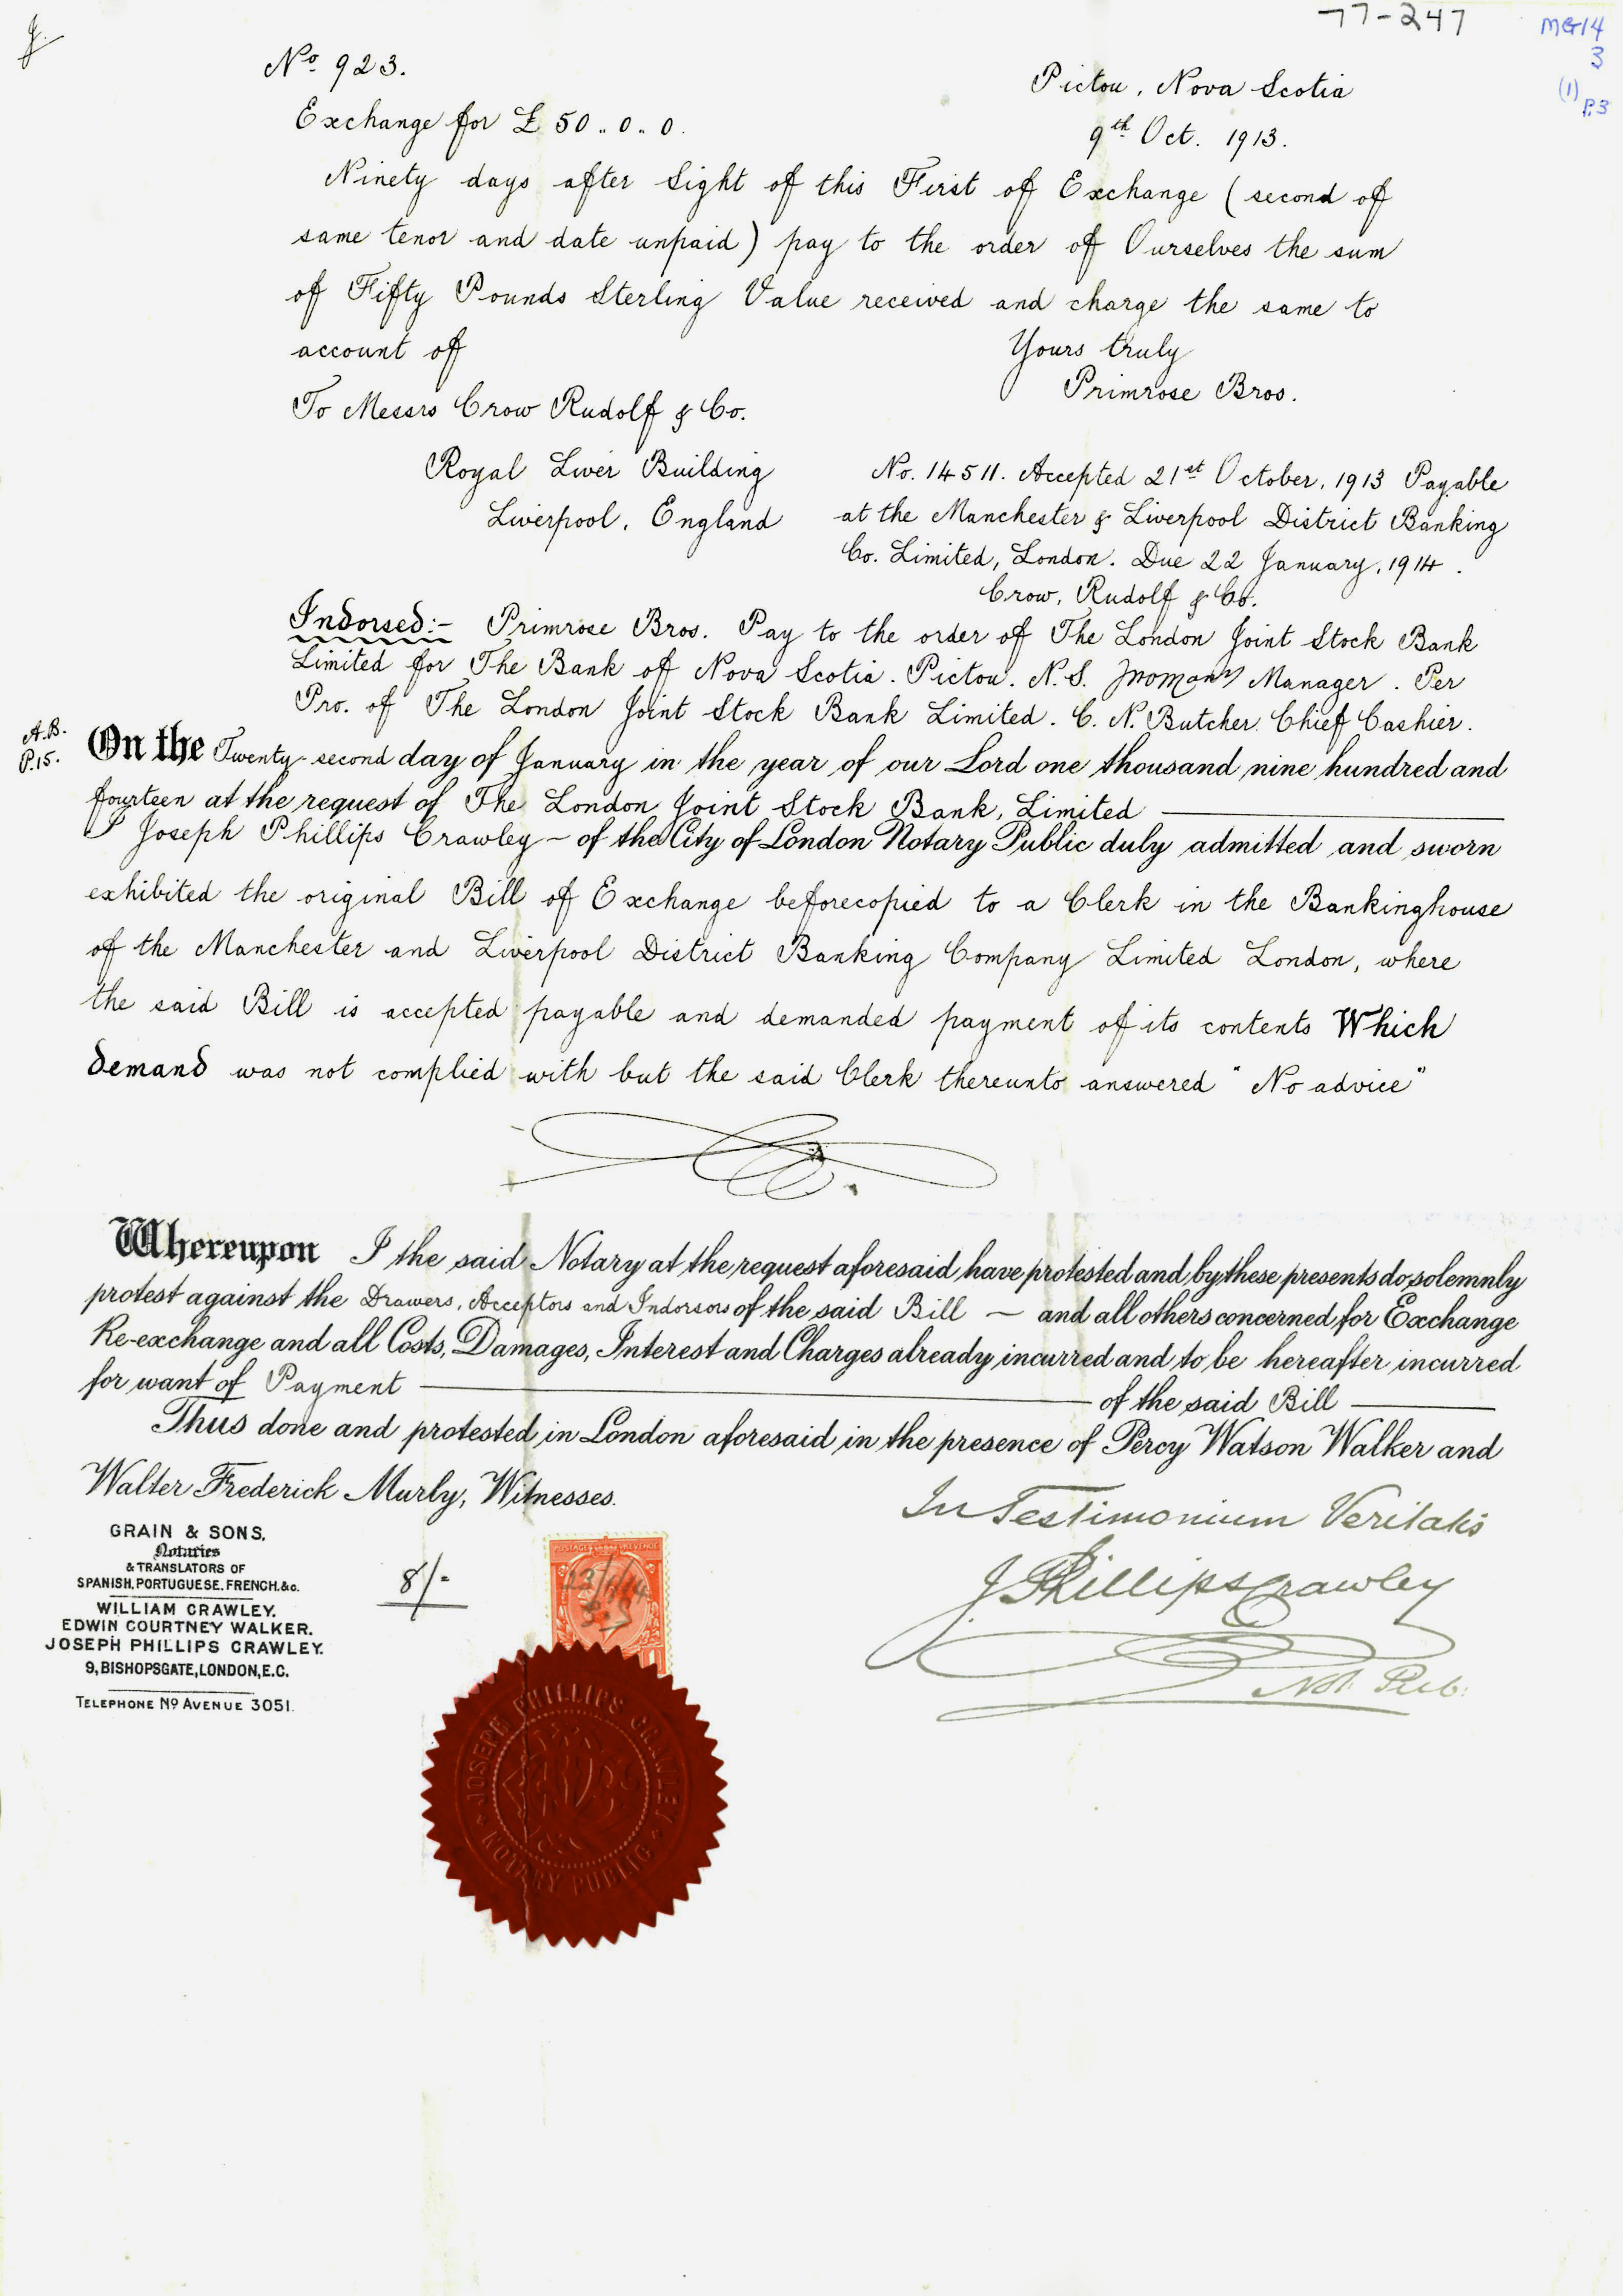 77-247
MG14
3
(1)
P.3
No. 923.
Pictou, Nova Scotia
Exchange for £ 50 .. 0 .. 0.
9th Oct. 1913.
Ninety days after Sight of this First of Exchange (second of
same tenor and date unpaid) pay to the order of Ourselves the sum
of Fifty Pounds Sterling Value received and charge the same to
account of
Yours truly
Primrose Bros.
To Messrs Crow Rudolf & Co.
Royal Liver Building
Liverpool, England
No. 14511. Accepted 21st October, 1913 Payable
at the Manchester & Liverpool District Banking
Co. Limited, London. Due 22 January, 1914.
Crow, Rudolf & Co.
Indorsed:- Primrose Bros. Pay to the order of The London Joint Stock Bank
Limited for The Bank of Nova Scotia. Pictou. N.S. Manager. Per
Pro. of The London Joint Stock Bank Limited. C. N. Butcher. Chief Cashier.
A.B.
P.15.
On the Twenty-second day of January in the year of our Lord one thousand nine hundred and
fourteen at the request of The London Joint Stock Bank, Limited
I Joseph Phillips Crawley – of the City of London Notary Public duly admitted and sworn
exhibited the original Bill of Exchange beforecopied to a Clerk in the Bankinghouse
of the Manchester and Liverpool District Banking Company Limited London, where
the said Bill is accepted payable and demanded payment of its contents Which
demand was not complied with but the said Clerk thereunto answered "No advice"
Whereupon I the said Notary at the request aforesaid have protested and by these presents do solemnly
protest against the Drawers, Acceptors and Indorsors of the said Bill — and all others concerned for Exchange
Re-exchange and all Costs, Damages, Interest and Charges already incurred and to be hereafter incurred
for want of Payment of the said Bill
Thus done and protested in London aforesaid in the presence of Percy Watson Walker and
Walter Frederick Murby, Witnesses.
In Testimonium Veritatis
J Phillips Crawley
Not. Pub.
GRAIN & SONS,
Notaries
& TRANSLATORS OF
SPANISH, PORTUGUESE, FRENCH, &c.
WILLIAM CRAWLEY.
EDWIN COURTNEY WALKER.
JOSEPH PHILLIPS CRAWLEY.
9, BISHOPSGATE, LONDON, E.C.
TELEPHONE No AVENUE 3051.
8/-
POSTAGE & REVENUE
JOSEPH PHILLIPS CRAWLEY
NOTARY PUBLIC